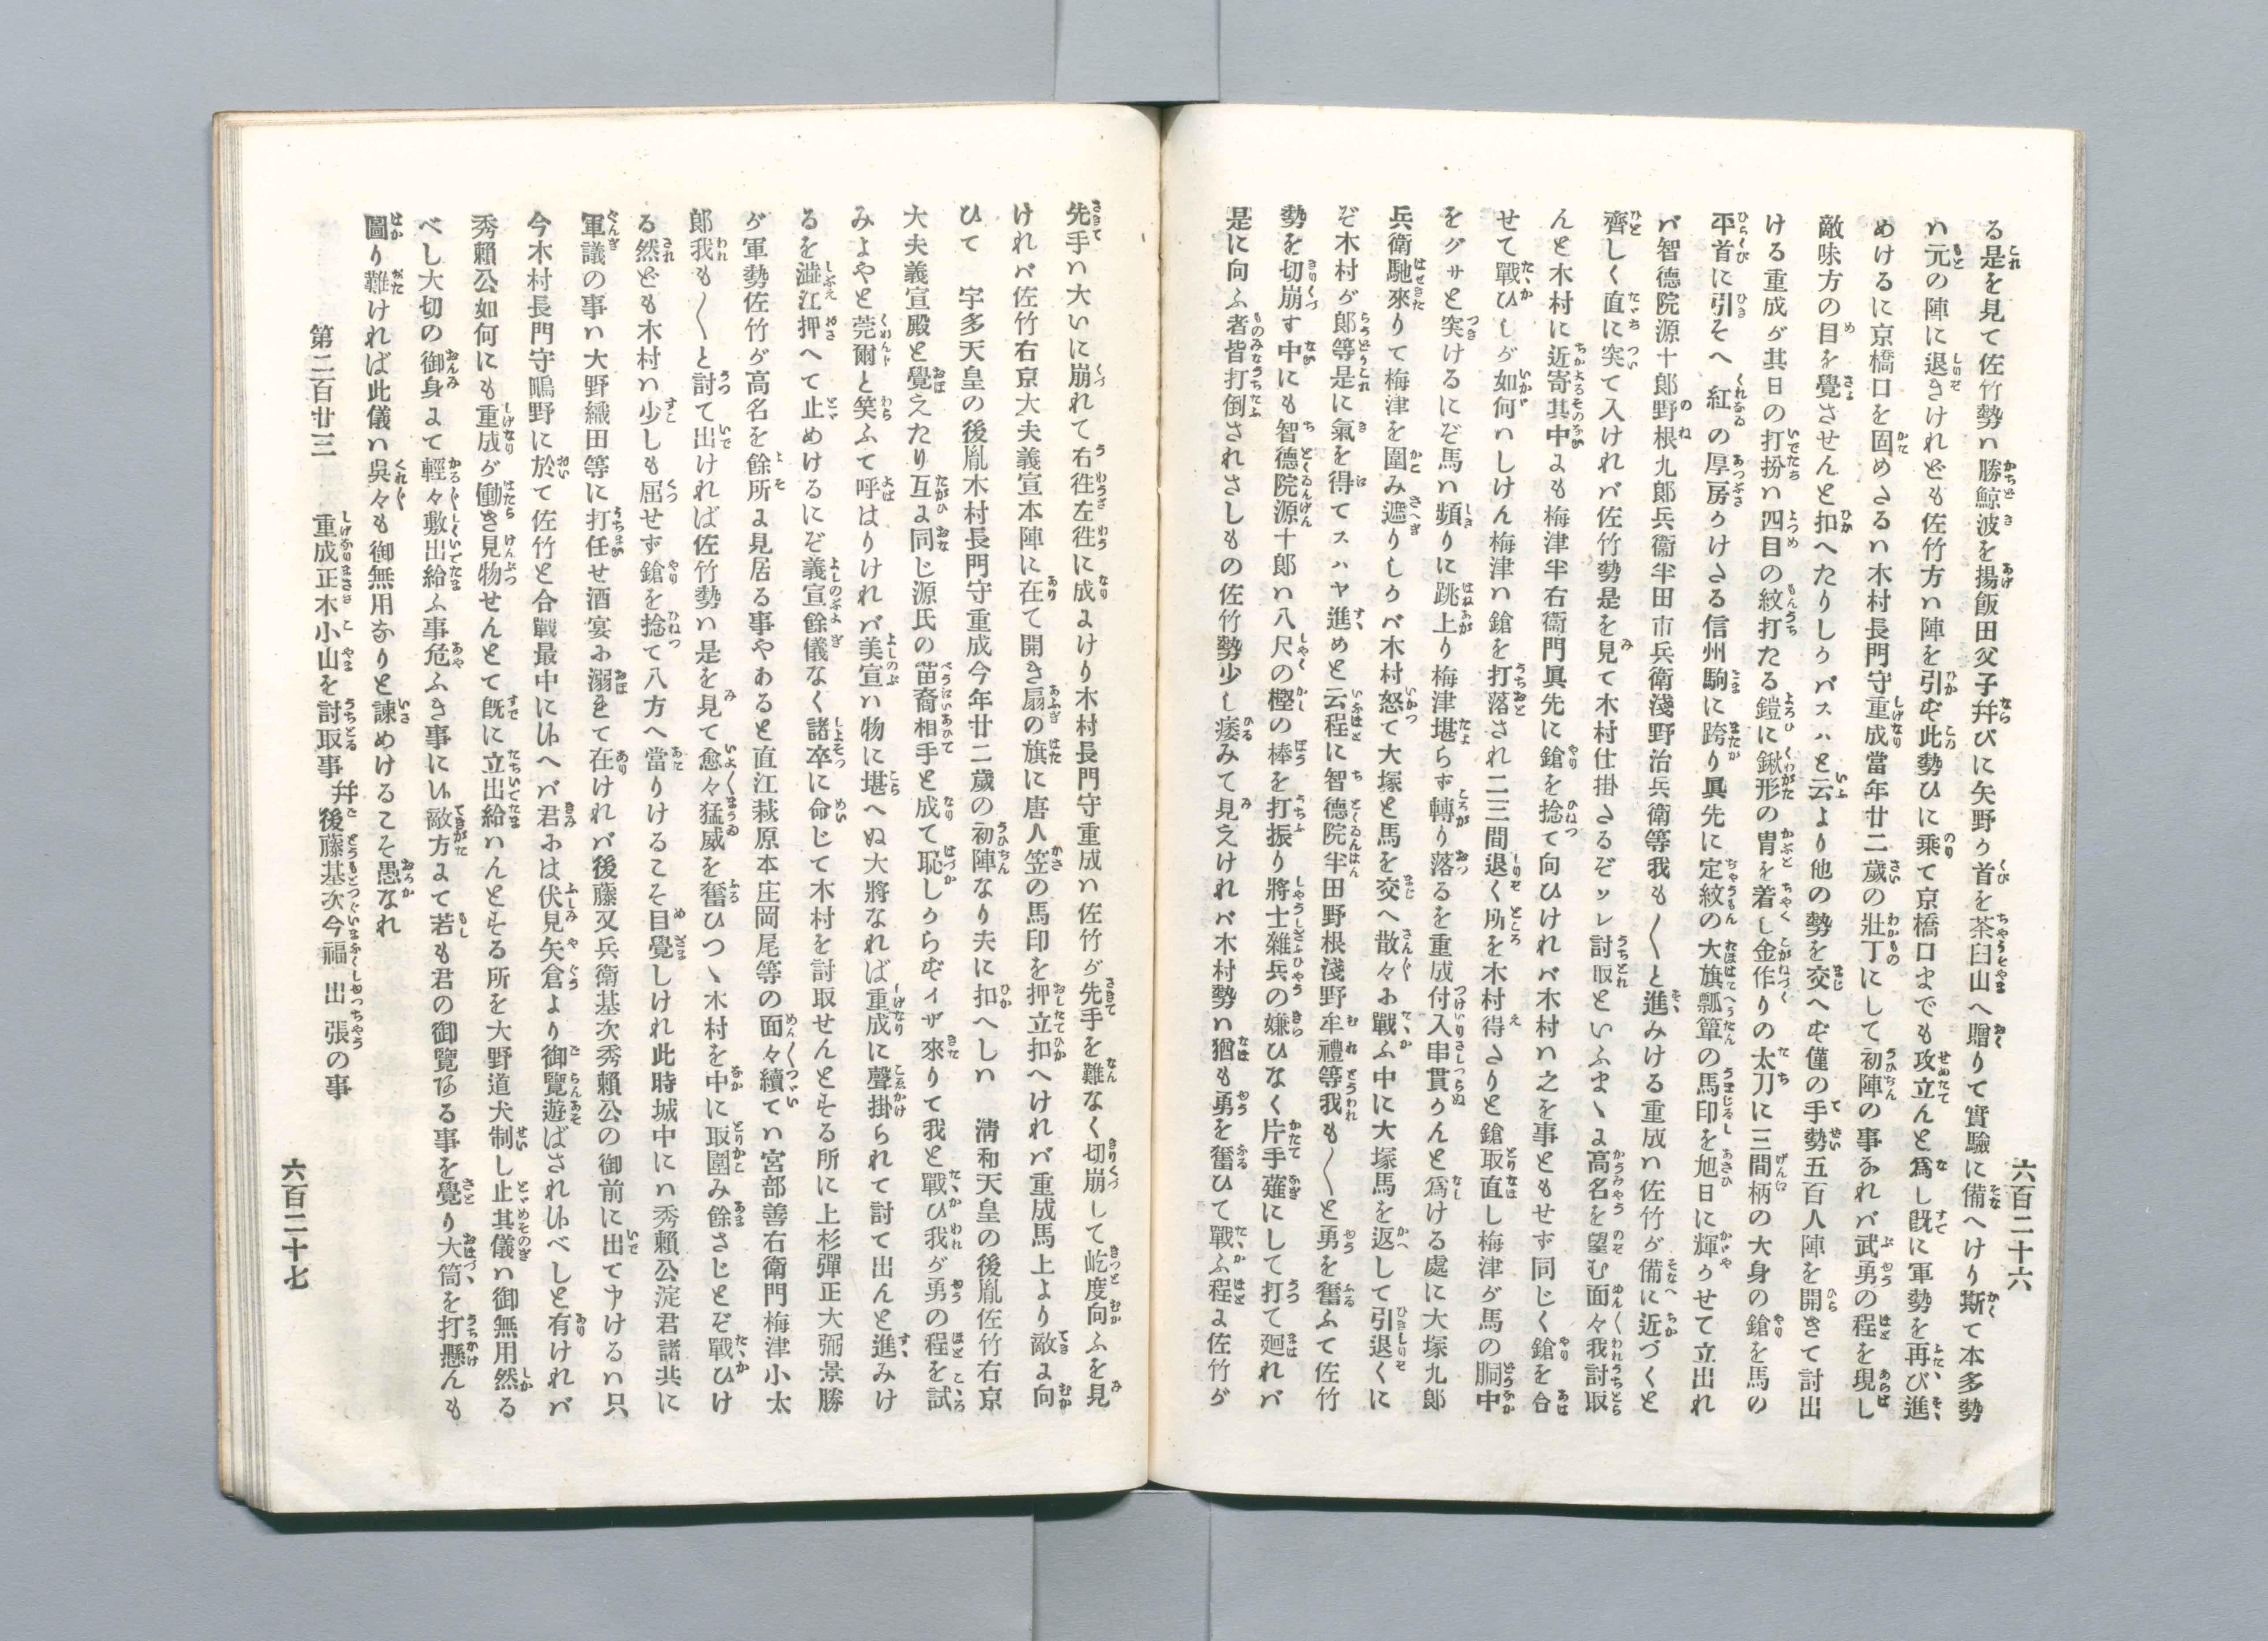 六百二十六
る是を見て佐竹勢ハ勝鯨波を揚飯田父子幷びに矢野が首を茶臼山へ贈りて實驗に備へけり斯て本多勢
ハ元の陣に退きけれども佐竹方ハ陣を引かず此勢ひに乘て京橋口までも攻立んと爲し旣に軍勢を再び進
めけるに京橋口を固めたるハ木村長門守重成當年廿二歲の壯丁にして初陣の事なれバ武勇の程を現し
敵味方の目を覺させんと扣へたりしがバスハと云より他の勢を交へず僅の手勢五百人陣を開きて討出
ける重成が其日の打扮ハ四目の紋打たる鎧に鍬形の冑を着し金作りの太刀に三間柄の大身の鎗を馬の
平首に引そへ紅の厚房かけたる信州駒に跨り眞先に定紋の大旗瓢簞の馬印を旭日に輝かせて立出れ
バ智德院源十郎野根九郎兵衞半田市兵衛淺野治兵衛等我も〱と進みける重成ハ佐竹が備に近づくと
齊しく直に突て入けれバ佐竹勢是を見て木村仕掛たるぞソレ討取といふまゝに高名を望む面々我討取
んと木村に近寄其中にも梅津半右衞門眞先に鎗を捻て向ひけれバ木村ハ之を事ともせず同じく鎗を合
せて戰ひしが如何ハしけん梅津ハ鎗を打落され二三間退く所を木村得たりと鎗取直し梅津が馬の胴中
をグサと突けるにぞ馬ハ頻りに跳上り梅津堪らず轉り落るを重成付入串貫かんと爲ける處に大塚九郎
兵衛馳來りて梅津を圍み遮りしかバ木村怒て大塚と馬を交へ散々に戰ふ中に大塚馬を返して引退くに
ぞ木村が郞等是に氣を得てスハヤ進めと云程に智德院半田野根淺野牟禮等我も〱と勇を奮ふて佐竹
勢を切崩す中にも智德院源十郎ハ八尺の樫の棒を打振り將士雜兵の嫌ひなく片手薙にして打て廻れバ
是に向ふ者皆打倒されさしもの佐竹勢少し痿みて見えけれバ木村勢ハ猶も勇を奮ひて戰ふ程に佐竹が
先手ハ大いに崩れて右徃左徃に成にけり木村長門守重成ハ佐竹が先手を難なく切崩して屹度向ふを見
けれバ佐竹右京大夫義宣本陣に在て開き扇の旗に唐人笠の馬印を押立扣へけれバ重成馬上より敵に向
ひて　宇多天皇の後胤木村長門守重成今年廿二歲の初陣なり夫に扣へしハ　淸和天皇の後胤佐竹右京
大夫義宣殿と覺えたり互に同じ源氏の苗裔相手と成て恥しからずイザ來りて我と戰ひ我が勇の程を試
みよやと莞爾と笑ふて呼はりけれバ美宣ハ物に堪へぬ大將なれば重成に聲掛られて討て出んと進みけ
るを澁江押へて止めけるにぞ義宣餘儀なく諸卒に命じて木村を討取せんとする所に上杉彈正大弼景勝
が軍勢佐竹が高名を餘所に見居る事やあると直江萩原本庄岡尾等の面々續てハ宮部善右衛門梅津小太
郎我も〱と討て出ければ佐竹勢ハ是を見て愈々猛威を奮ひつゝ木村を中に取圍み餘さじとぞ戰ひけ
る然ども木村ハ少しも屈せず鎗を捻て八方へ當りけるこそ目覺しけれ此時城中にハ秀賴公淀君諸共に
軍議の事ハ大野織田等に打任せ酒宴に溺れて在けれバ後藤又兵衛基次秀賴公の御前に出て申けるハ只
今木村長門守鴫野に於て佐竹と合戰最中に候へバ君には伏見矢倉より御覽遊ばされ候べしと有けれバ
秀賴公如何にも重成が働き見物せんとて旣に立出給ハんとする所を大野道犬制し止其儀ハ御無用然る
べし大切の御身にて輕々敷出給ふ事危ふき事に候敵方にて若も君の御覽ある事を覺り大筒を打懸んも
圖り難ければ此儀ハ吳々も御無用なりと諫めけるこそ愚なれ
第二百廿三　重成正木小山を討取事 幷 後藤基次今福出張の事
六百二十七